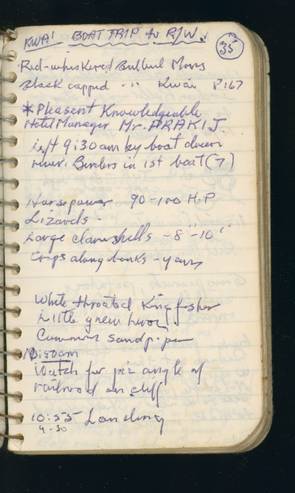 KWAI BOAT TRIP to R/W. 35
Red-whiskered Bulbul Mons
Black capped " " Kwai P167
* Pleasant Knowledgeable
Hotel Manager Mr. PRAKIJ
Left 9:30 am by boat down
river. Birders in 1st boat (7)
Horsepower 90-100 H.P
Lizards -
Large clamshells - 8"-10"
Crops along banks - yams
White throated Kingfisher
Little green heron
Common Sandpiper
Watch for pix angle of
railroad on cliff
10:55 Landing
9-30